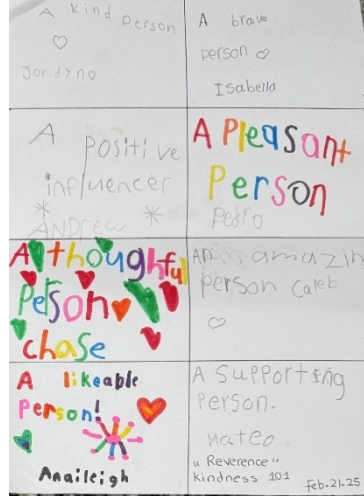 A kind person
Jordyno
A brave
person
Isabella
A positive
influencer
ANDREW
A Pleasant
Person
Pedro
A thoughtful
Person
chase
An amazin
person Caleb
A likeable
person!
Anaileigh
A Supporting
Person.
Mateo
"Reverence"
Kindness 101
feb.21.25